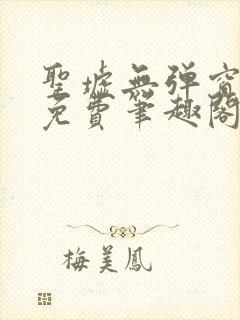 聖墟無弹窗
免費筆趣閣
梅美鳳